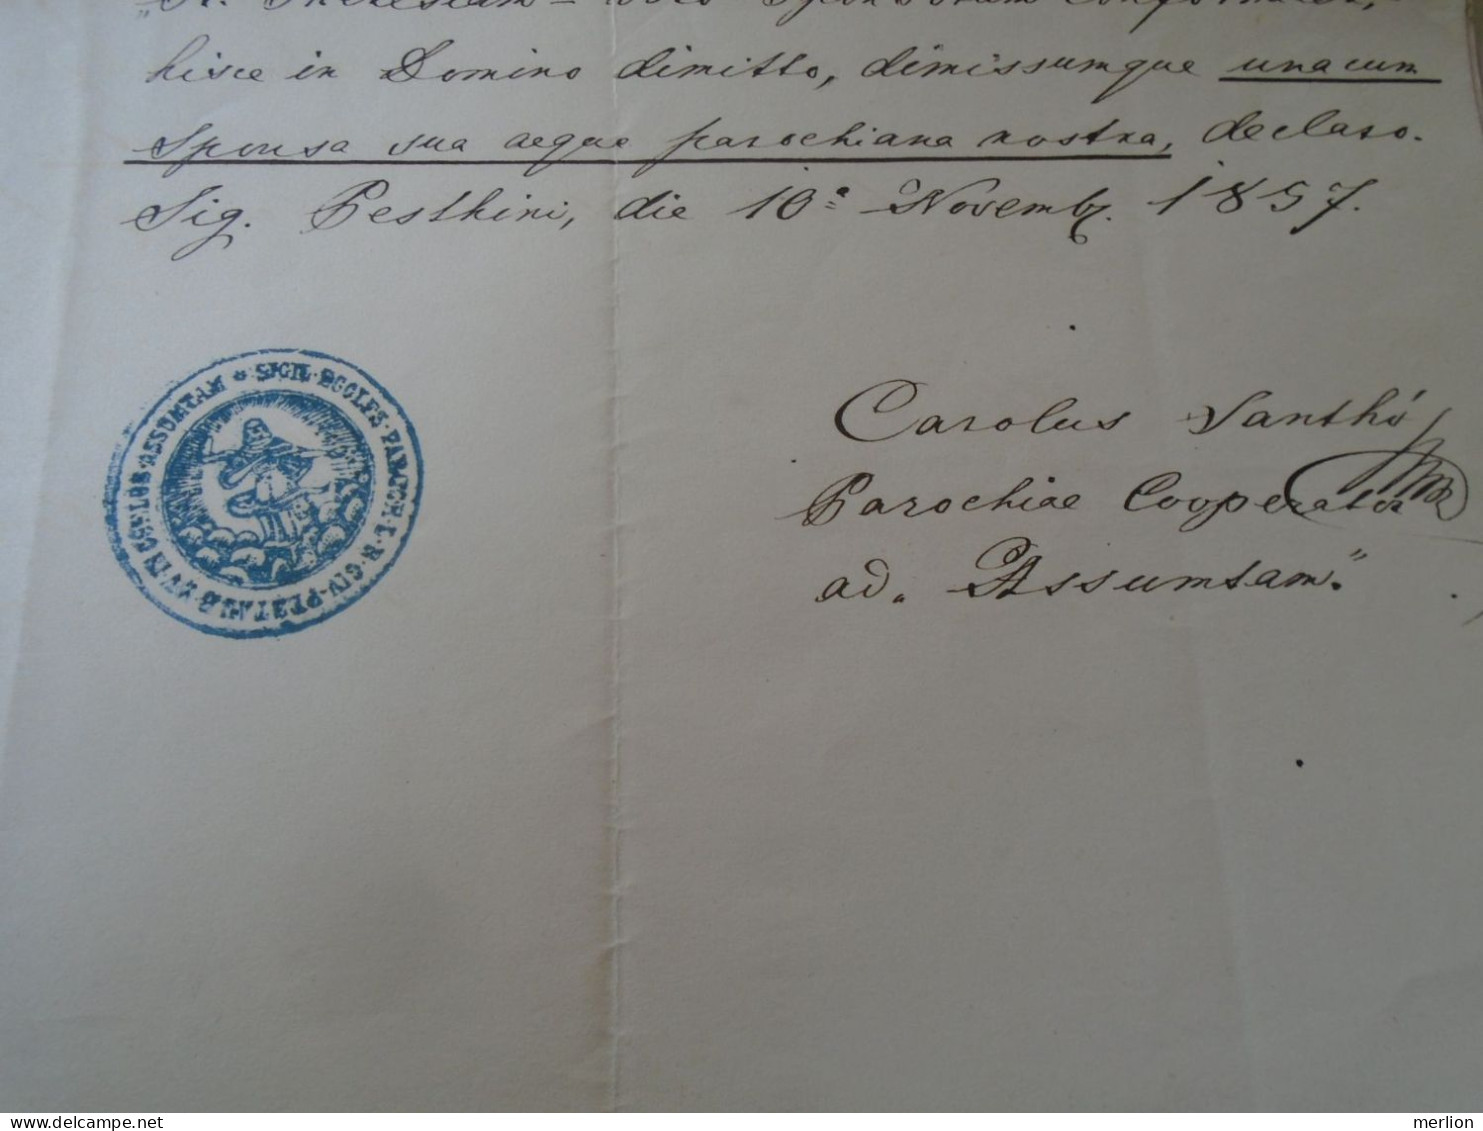 hisce in Domino dimitto, dimissumque unacum
Sponsa sua aeque parochiana nostra, declaro.
Sig. Pesthini, die 10ª Novemb. 1857.
SIGIL. ECCLES. PAROCH. L. R. CIV. PESTAN.
IN COELOS ASSUMTAM
Carolus Santhó
Parochiae Cooperator
ad „Assumtam“
delcampe.net
merlion